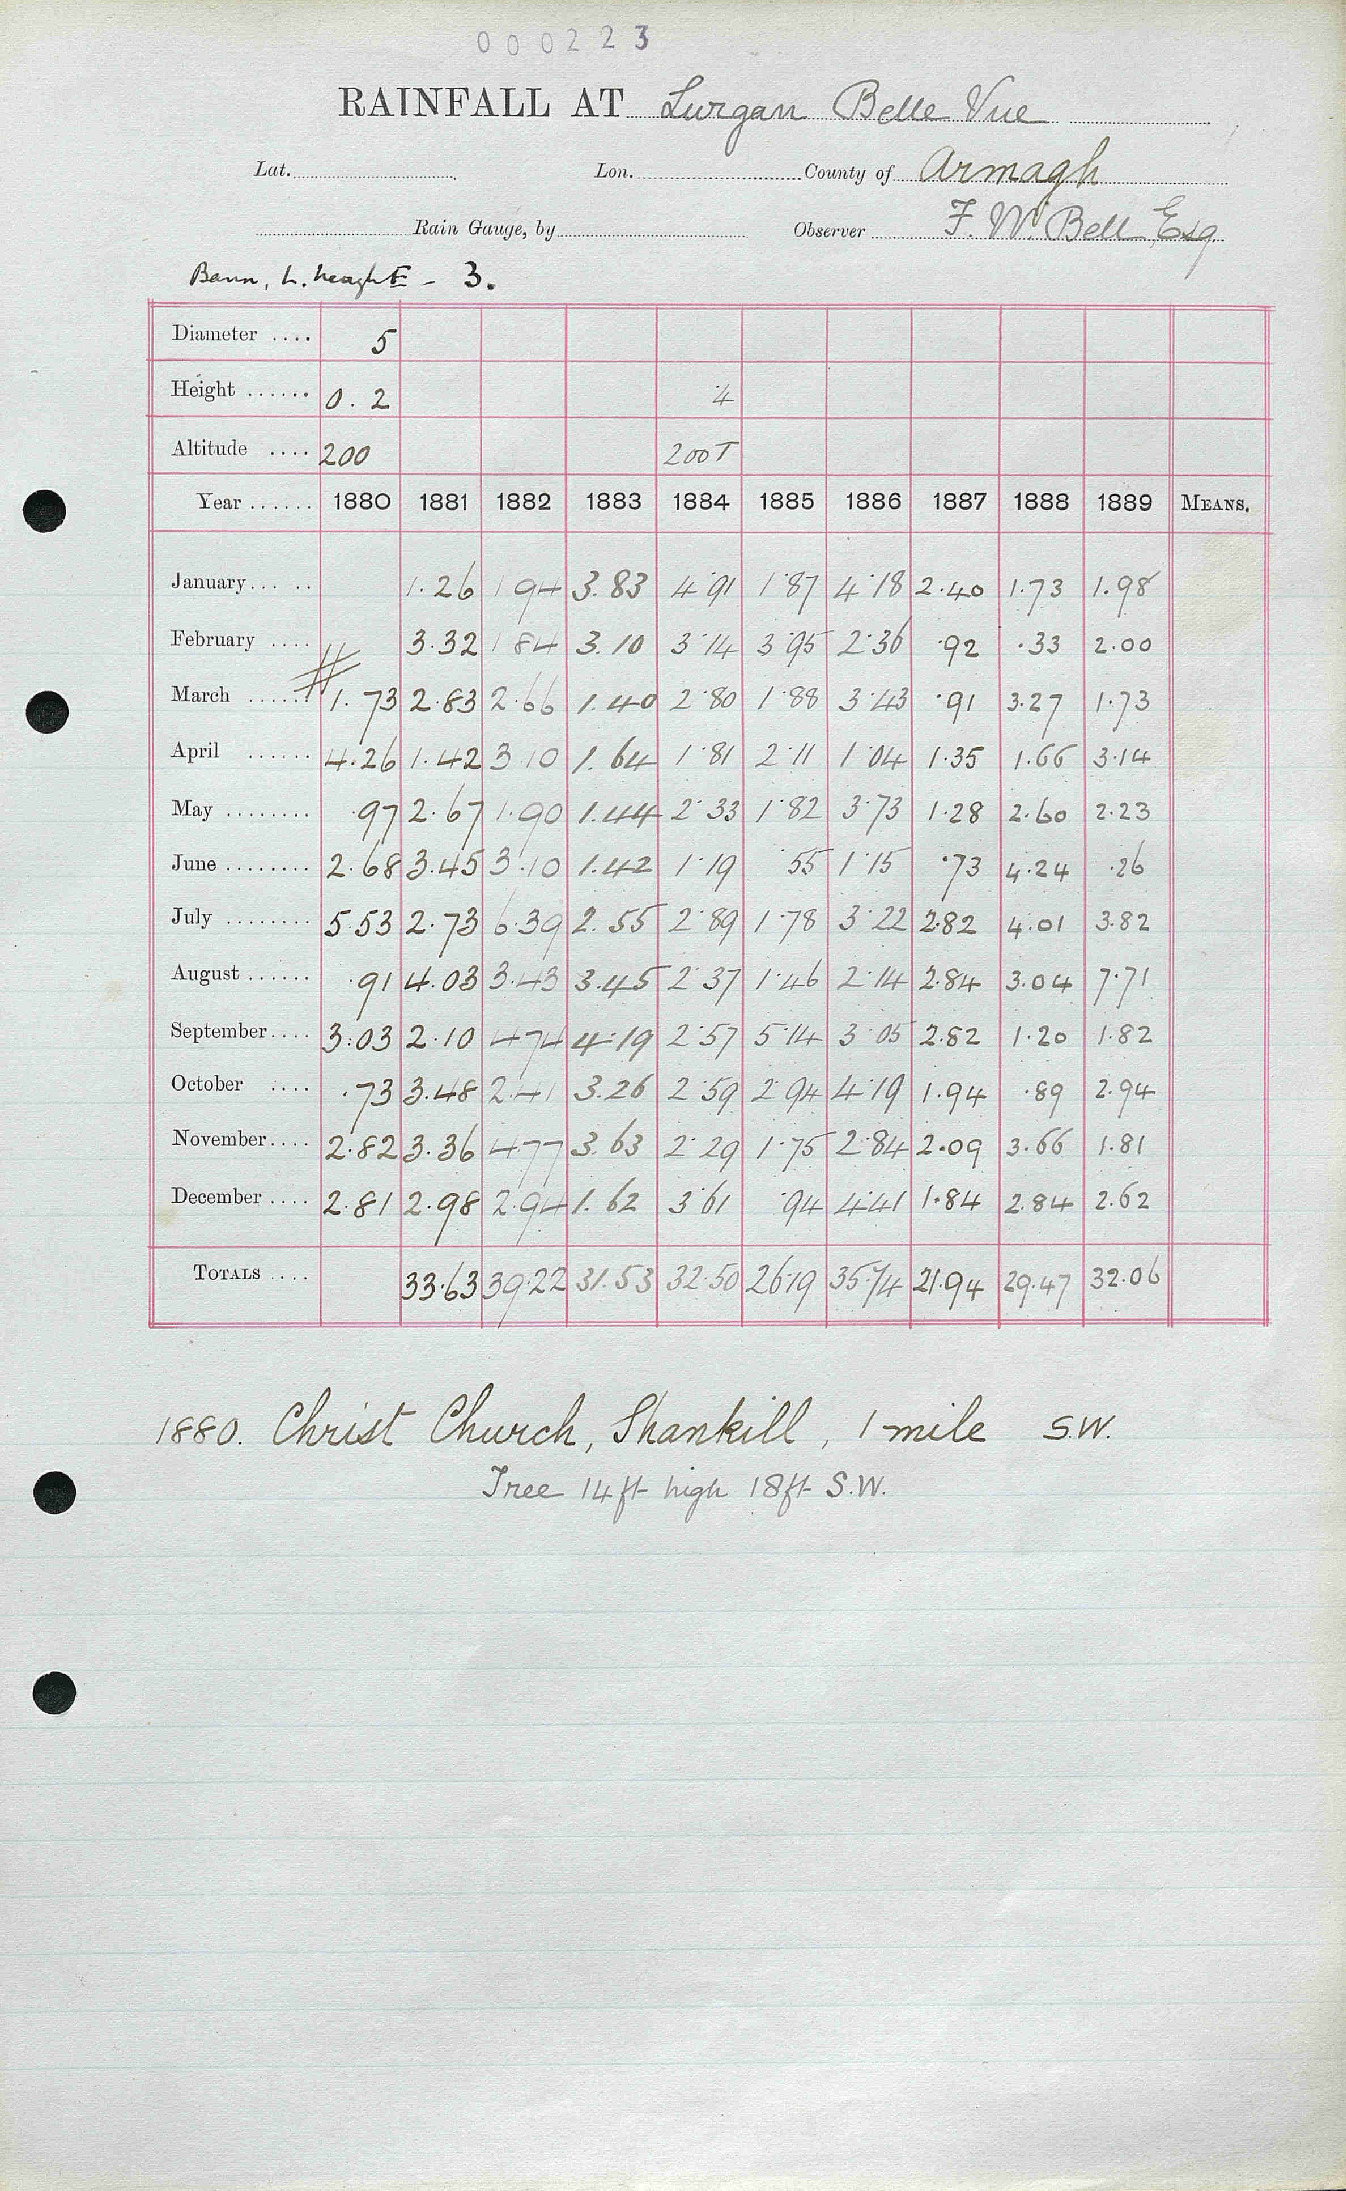 000223
RAINFALL AT Lurgan Belle Vue
Lat. Lon. County of Armagh
Rain Gauge, by Observer F. W. Bell Esq
Bann, L. Neagh E - 3.
Diameter .... 5
Height ...... 0.2 ·4
Altitude .... 200 200T
Year ...... 1880 1881 1882 1883 1884 1885 1886 1887 1888 1889 MEANS.
January... .. 1.26 1 94 3.83 4·91 1·87 4·18 2.40 1.73 1.98
February .... 3.32 1 84 3.10 3·14 3·95 2·36 ·92 ·33 2.00
March ...... # 1.73 2.83 2.66 1.40 2·80 1·88 3·43 ·91 3.27 1.73
April ...... 4.26 1.42 3 10 1.64 1·81 2·11 1·04 1.35 1.66 3.14
May ........ .97 2.67 1.90 1.44 2·33 1·82 3·73 1.28 2.60 2.23
June ........ 2.68 3.45 3.10 1.42 1·19 ·55 1·15 ·73 4.24 .26
July ........ 5.53 2.73 6.39 2.55 2·89 1·78 3·22 2.82 4.01 3.82
August ...... .91 4.03 3.43 3.45 2·37 1·46 2·14 2.84 3.04 7.71
September.... 3.03 2.10 4 74 4.19 2·57 5·14 3·05 2.82 1.20 1.82
October .... .73 3.48 2.41 3.26 2·59 2·94 4·19 1.94 .89 2.94
November.... 2.82 3.36 4.77 3.63 2·29 1·75 2·84 2.09 3.66 1.81
December .... 2.81 2.98 2.94 1.62 3·61 ·94 4·41 1.84 2.84 2.62
TOTALS .... 33.63 39.22 31.53 32·50 26·19 35·74 21.94 29.47 32.06
1880. Christ Church, Shankill, 1 mile S.W.
Tree 14ft high 18ft S.W.